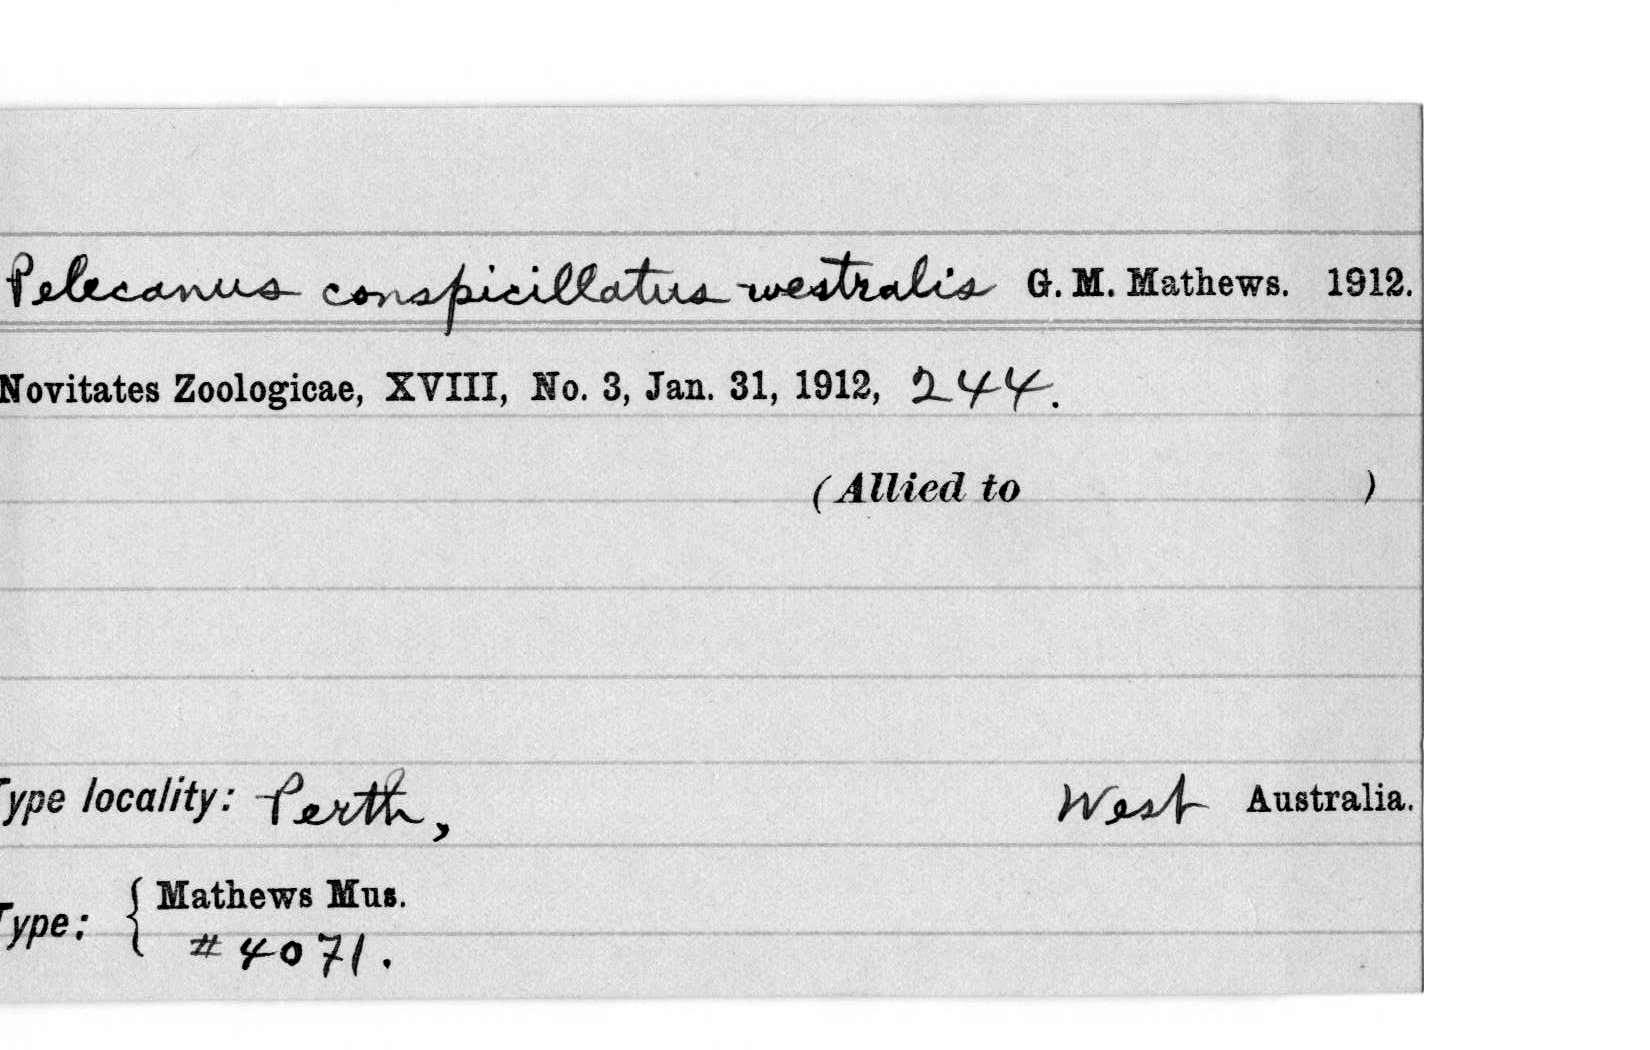 Pelecanus conspicillatus westralis G. M. Mathews. 1912.
Novitates Zoologicae, XVIII, No. 3, Jan. 31, 1912, 244.
(Allied to )
Type locality: Perth, West Australia.
Type: { Mathews Mus.
#4071.